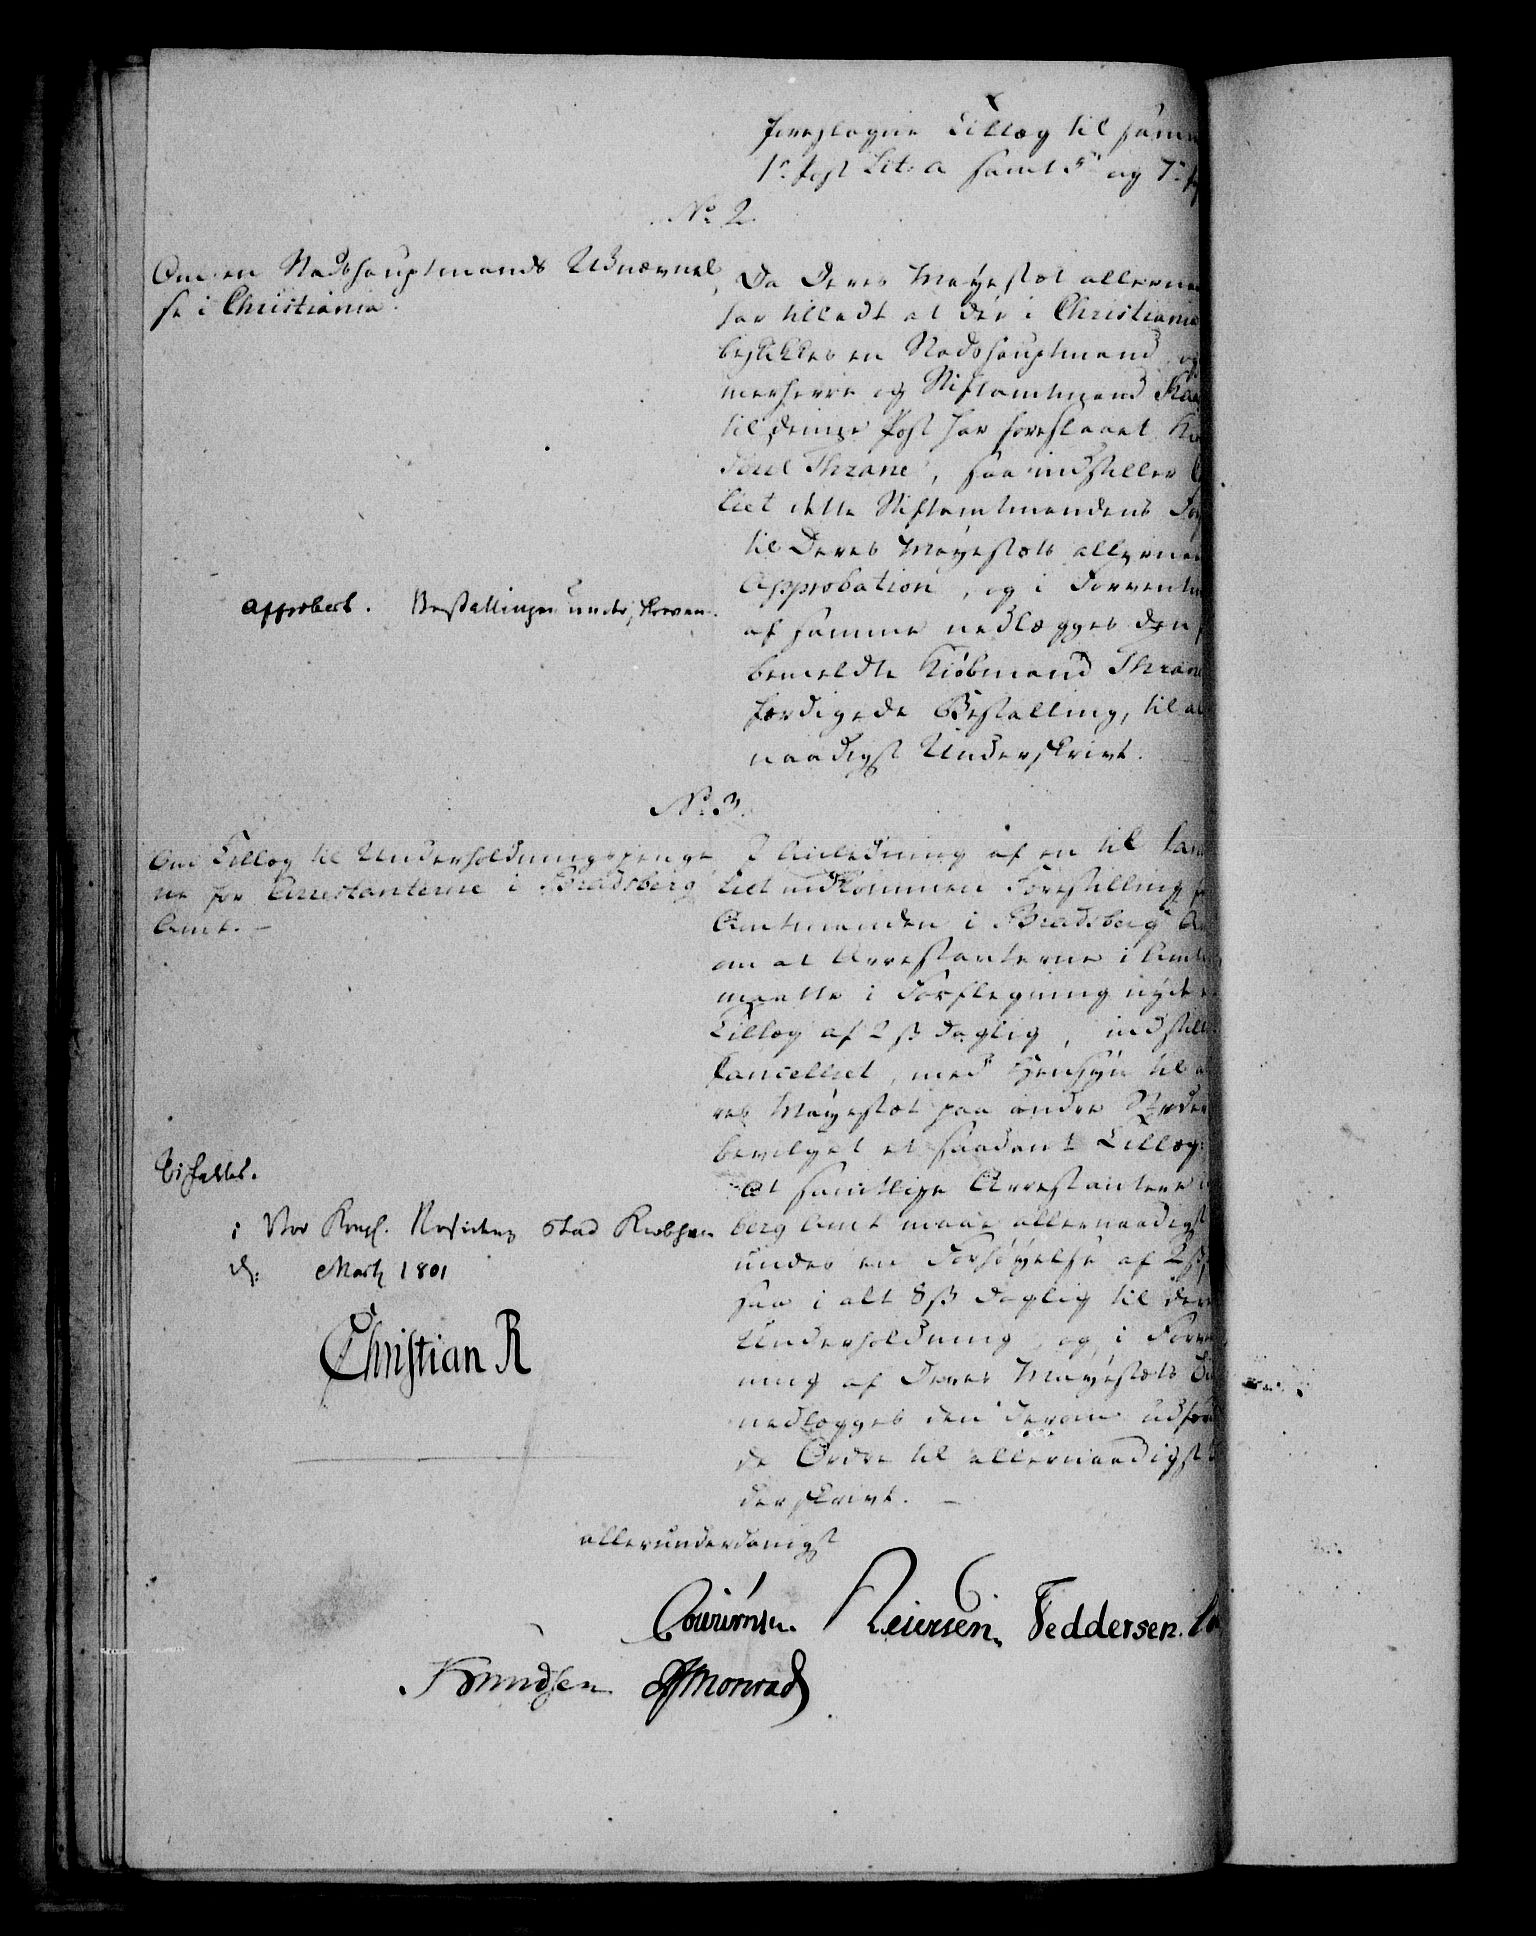 foreslagne Tillæg til samm
1ste Post Lit: a samt 5te og 7de
No 2.
Om en Stadshauptmands Udnævnel
se i Christiania.
Da Deres Mayestæt allerna
har tilladt at der i Christiania
beskikkes en Stadshauptmand, og
merherre og Stiftamtmand Kaa
til denne Post har foreslaaet
Poul Thrane, saa indstiller
liet dette Stiftamtmandens For
til Deres Mayestæts allerna
Approbation, og i Forvent
af samme nedlægges den
bemeldte Kiøbmand Thrane
færdigede Bestalling, til al
naadigst Underskrivt.
approbert. Bestallingen underskreven.
No 3.
Om Tillæg til Underholdningspenge
ne for Arrestanterne i Bradsberg
Amt. -
I Anledning af en til Can
liet indkommen Forestilling
Amtmanden i Bradsberg A
om at Arrestanterne i Amt
maatte i Forplegning nyde
Tillæg af 2 ß daglig, indstill
Cancelliet, med Hensyn til
res Mayestæt paa andre Stæder
bevilget et saadant Tillæg:
At samtlige Arrestantere
berg Amt maae allernaadigst
undes en Forhøyelse af 2 ß,
saa i alt 8 ß daglig til der
Underholdning, og, i Forve
ning af Deres Mayestæts Bi
nedlægges den derom udfær
de Ordre til allernaadigst
derskrivt. -
Bifaldes.
i Vor Kongl. Residenz Stad Kiøbhavn
d: Martz 1801
Christian R
allerunderdanigst
Reiersen. Feddersen.
Knudsen Monrad